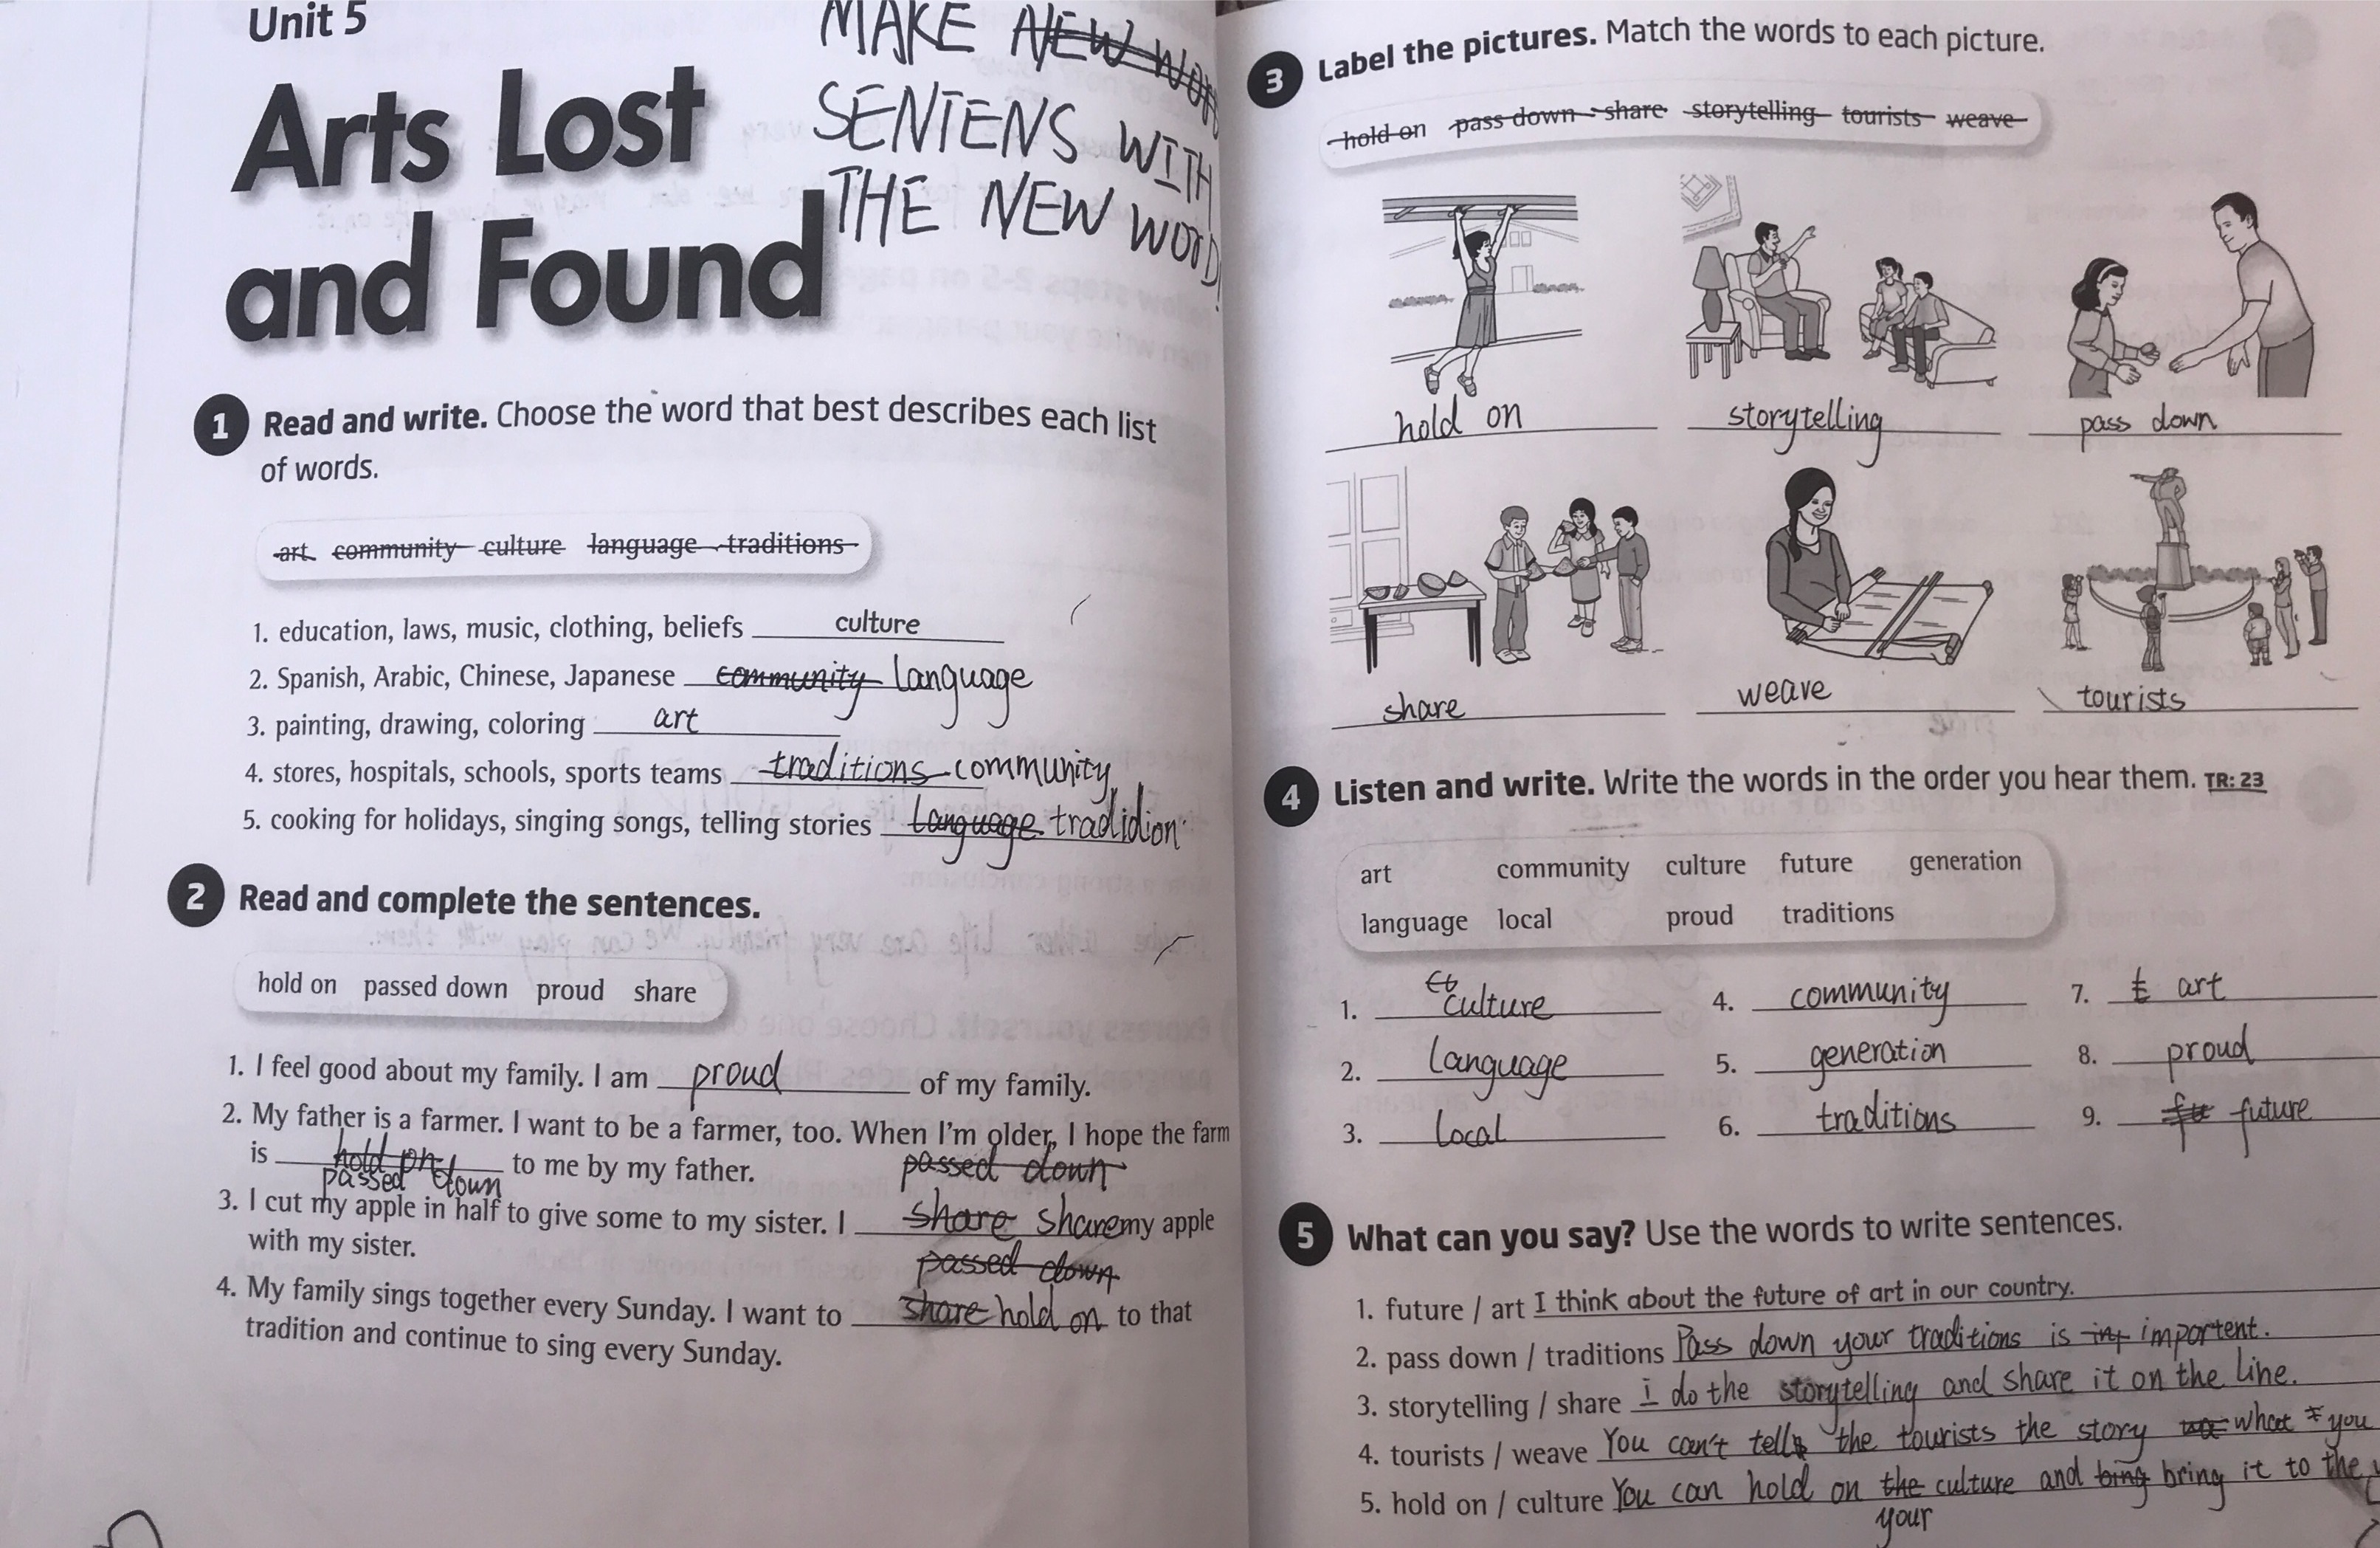 Unit 5
Arts Lost
and Found
MAKE NEW WOR
SENTENS WITH
THE NEW WORD!
1 Read and write. Choose the word that best describes each list
of words.
art community culture language traditions
1. education, laws, music, clothing, beliefs culture
2. Spanish, Arabic, Chinese, Japanese community language
3. painting, drawing, coloring art
4. stores, hospitals, schools, sports teams traditions community
5. cooking for holidays, singing songs, telling stories language tradidion
2 Read and complete the sentences.
hold on passed down proud share
1. I feel good about my family. I am proud of my family.
2. My father is a farmer. I want to be a farmer, too. When I'm older, I hope the farm
is hold on to me by my father. passed down
passed down
3. I cut my apple in half to give some to my sister. I share share my apple
with my sister.
passed down
4. My family sings together every Sunday. I want to share hold on to that
tradition and continue to sing every Sunday.
3 Label the pictures. Match the words to each picture.
hold on pass down share storytelling tourists weave
hold on storytelling pass down
share weave tourists
4 Listen and write. Write the words in the order you hear them. TR: 23
art community culture future generation
language local proud traditions
1. culture 4. community 7. art
2. language 5. generation 8. proud
3. local 6. traditions 9. fu future
5 What can you say? Use the words to write sentences.
1. future / art I think about the future of art in our country.
2. pass down / traditions Pass down your traditions is important.
3. storytelling / share I do the storytelling and share it on the line.
4. tourists / weave You can't tell the tourists the story what you
5. hold on / culture You can hold on the culture and bing bring it to the
your